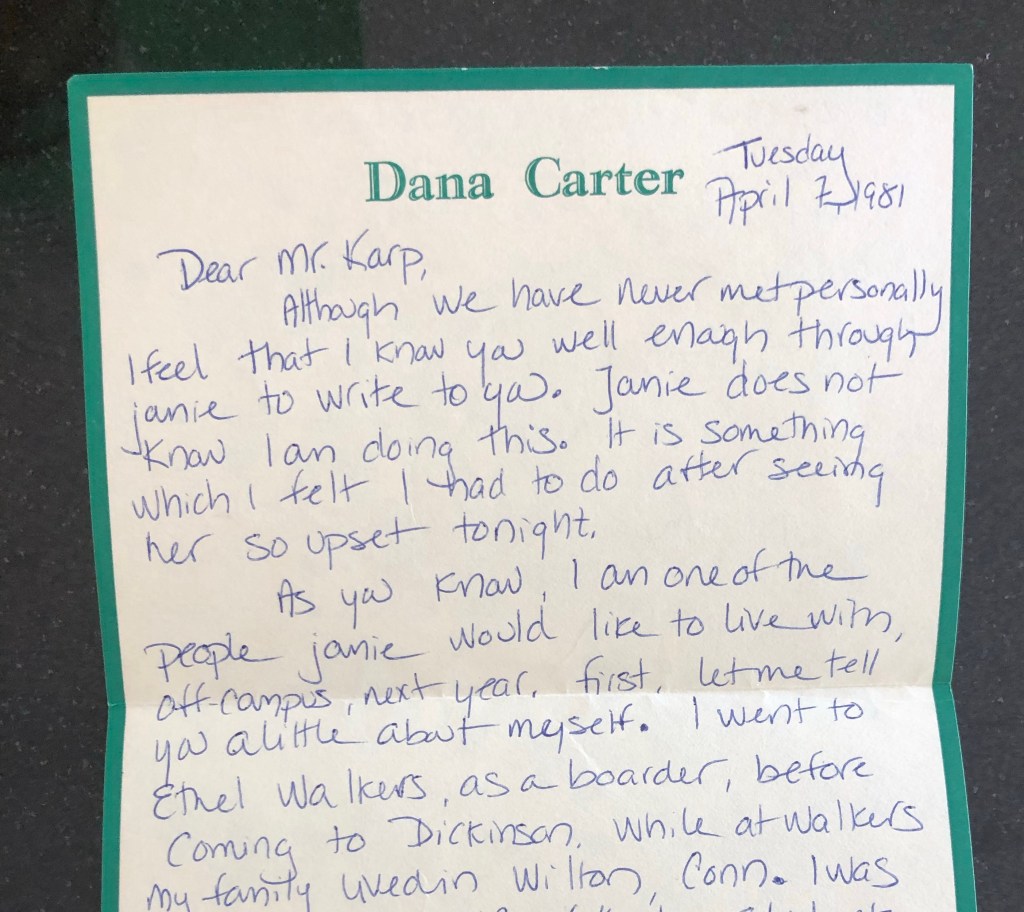 Dana Carter
Tuesday
April 7, 1981
Dear Mr. Karp,
Although we have never met personally
I feel that I know you well enough through
janie to write to you. Janie does not
know I am doing this. It is something
which I felt I had to do after seeing
her so upset tonight.
As you know, I am one of the
people janie would like to live with,
off-campus, next year. first, let me tell
you a little about myself. I went to
Ethel Walkers, as a boarder, before
coming to Dickinson. While at Walkers
my family lived in Wilton, Conn. I was